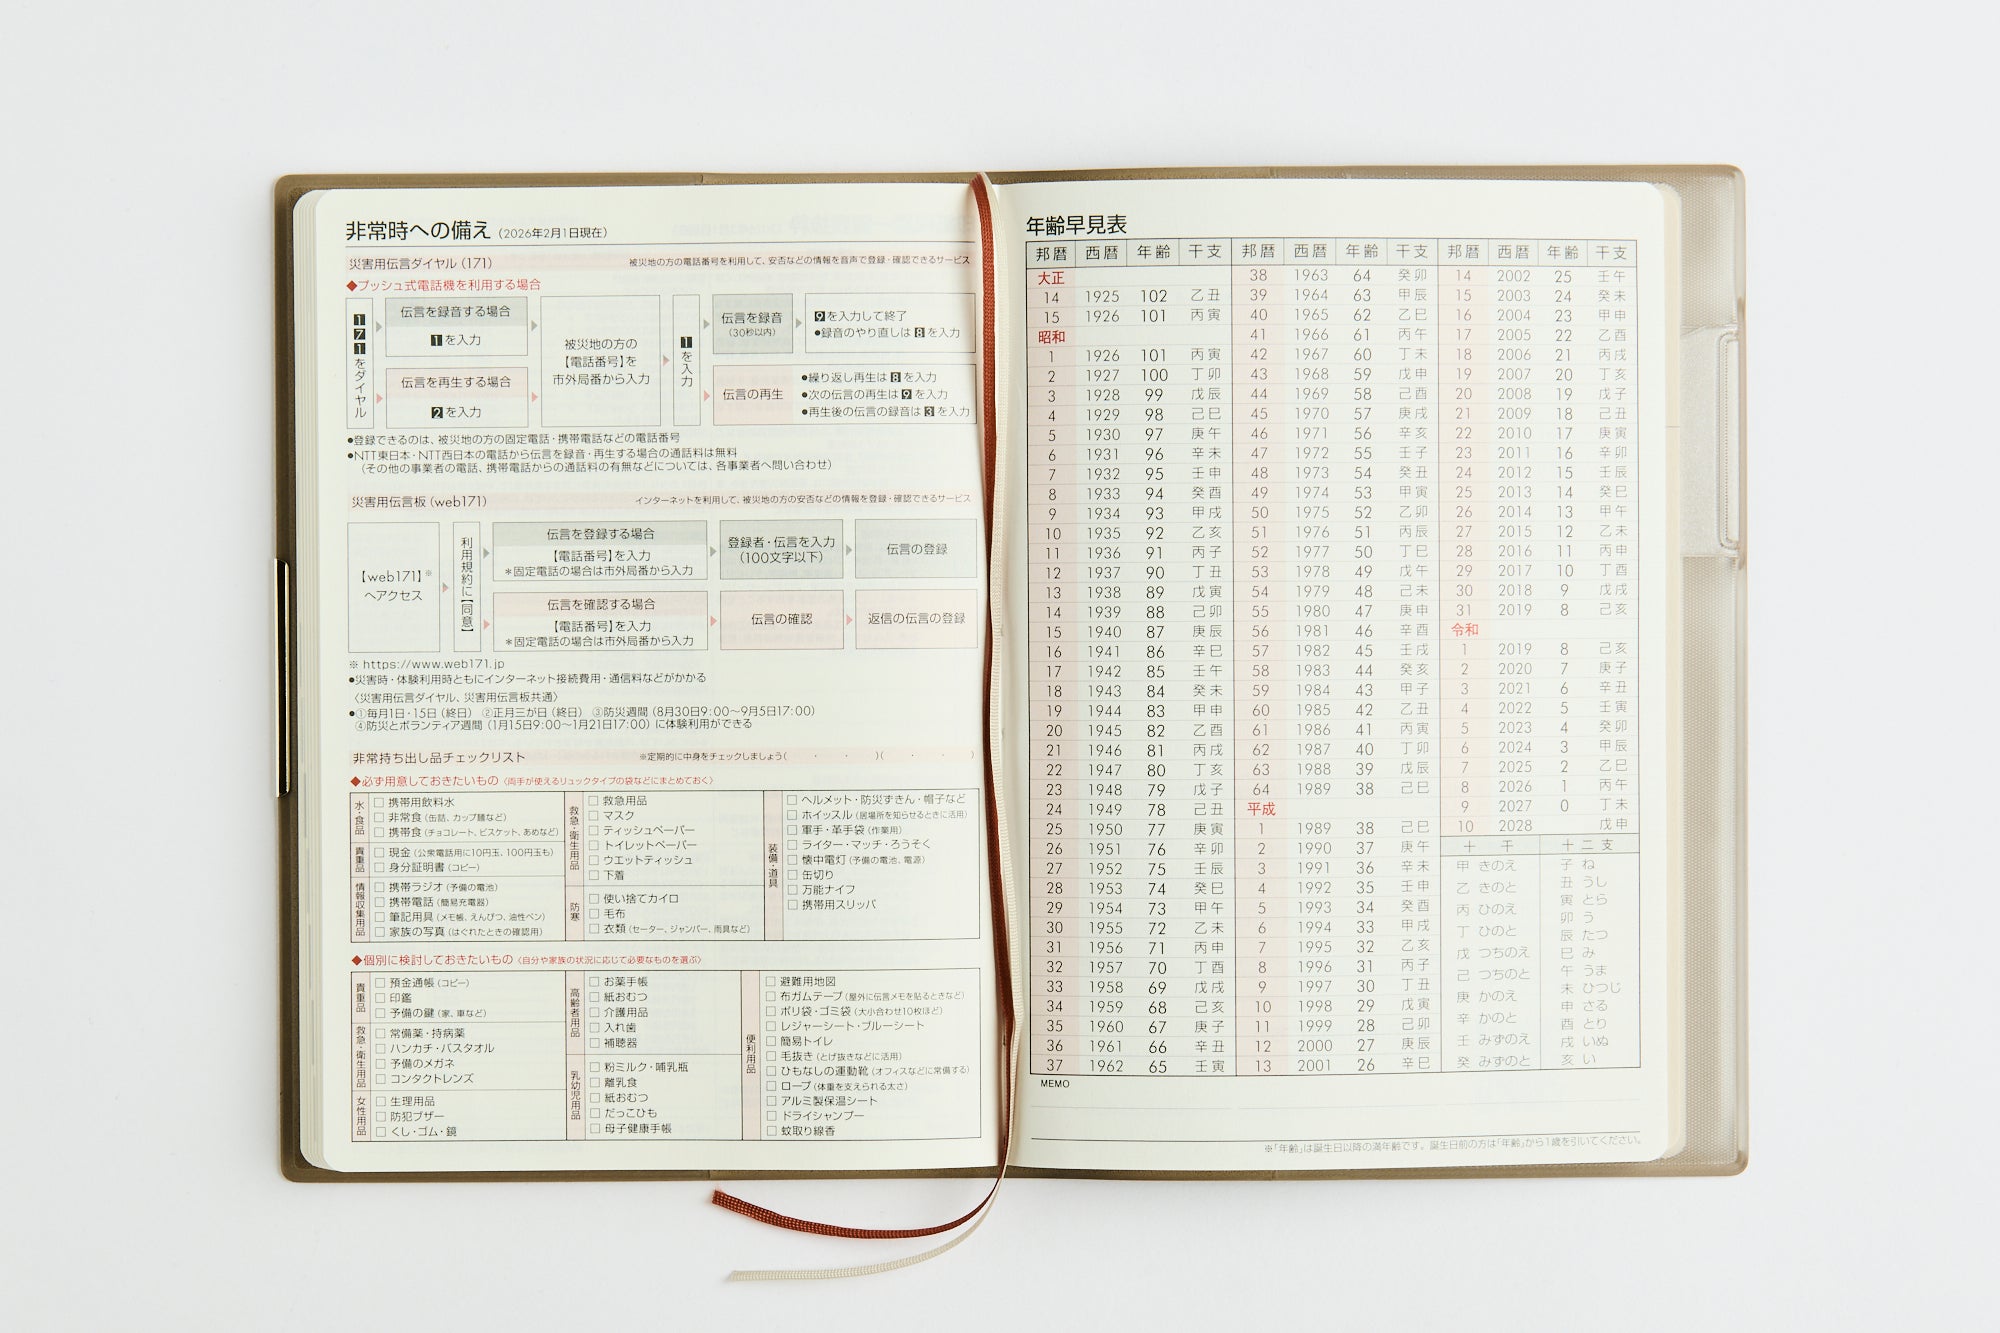 非常時への備え（2026年2月1日現在）
災害用伝言ダイヤル（171）　被災地の方の電話番号を利用して、安否などの情報を音声で登録・確認できるサービス
◆プッシュ式電話機を利用する場合
171をダイヤル
伝言を録音する場合
1を入力
伝言を再生する場合
2を入力
被災地の方の
【電話番号】を
市外局番から入力
1を入力
伝言を録音
（30秒以内）
9を入力して終了
●録音のやり直しは8を入力
伝言の再生
●繰り返し再生は8を入力
●次の伝言の再生は9を入力
●再生後の伝言の録音は3を入力
●登録できるのは、被災地の方の固定電話・携帯電話などの電話番号
●NTT東日本・NTT西日本の電話から伝言を録音・再生する場合の通話料は無料
（その他の事業者の電話、携帯電話からの通話料の有無などについては、各事業者へ問い合わせ）
災害用伝言板（web171）　インターネットを利用して、被災地の方の安否などの情報を登録・確認できるサービス
【web171】※
へアクセス
利用規約に【同意】
伝言を登録する場合
【電話番号】を入力
＊固定電話の場合は市外局番から入力
登録者・伝言を入力
（100文字以下）
伝言の登録
伝言を確認する場合
【電話番号】を入力
＊固定電話の場合は市外局番から入力
伝言の確認
返信の伝言の登録
※ https://www.web171.jp
●災害時・体験利用時ともにインターネット接続費用・通信料などがかかる
〈災害用伝言ダイヤル、災害用伝言板共通〉
●①毎月1日・15日（終日）　②正月三が日（終日）　③防災週間（8月30日9:00〜9月5日17:00）
④防災とボランティア週間（1月15日9:00〜1月21日17:00）に体験利用ができる
非常持ち出し品チェックリスト　※定期的に中身をチェックしましょう（　・　・　）（　・　・　）
◆必ず用意しておきたいもの〈両手が使えるリュックタイプの袋などにまとめておく〉
水・食品
□ 携帯用飲料水
□ 非常食（缶詰、カップ麺など）
□ 携帯食（チョコレート、ビスケット、あめなど）
貴重品
□ 現金（公衆電話用に10円玉、100円玉も）
□ 身分証明書（コピー）
情報収集用品
□ 携帯ラジオ（予備の電池）
□ 携帯電話（簡易充電器）
□ 筆記用具（メモ帳、えんぴつ、油性ペン）
□ 家族の写真（はぐれたときの確認用）
救急・衛生用品
□ 救急用品
□ マスク
□ ティッシュペーパー
□ トイレットペーパー
□ ウエットティッシュ
□ 下着
防寒
□ 使い捨てカイロ
□ 毛布
□ 衣類（セーター、ジャンパー、雨具など）
装備・道具
□ ヘルメット・防災ずきん・帽子など
□ ホイッスル（居場所を知らせるときに活用）
□ 軍手・革手袋（作業用）
□ ライター・マッチ・ろうそく
□ 懐中電灯（予備の電池、電源）
□ 缶切り
□ 万能ナイフ
□ 携帯用スリッパ
◆個別に検討しておきたいもの〈自分や家族の状況に応じて必要なものを選ぶ〉
貴重品
□ 預金通帳（コピー）
□ 印鑑
□ 予備の鍵（家、車など）
救急・衛生用品
□ 常備薬・持病薬
□ ハンカチ・バスタオル
□ 予備のメガネ
□ コンタクトレンズ
女性用品
□ 生理用品
□ 防犯ブザー
□ くし・ゴム・鏡
高齢者用品
□ お薬手帳
□ 紙おむつ
□ 介護用品
□ 入れ歯
□ 補聴器
乳幼児用品
□ 粉ミルク・哺乳瓶
□ 離乳食
□ 紙おむつ
□ だっこひも
□ 母子健康手帳
便利用品
□ 避難用地図
□ 布ガムテープ（屋外に伝言メモを貼るときなど）
□ ポリ袋・ゴミ袋（大小合わせ10枚ほど）
□ レジャーシート・ブルーシート
□ 簡易トイレ
□ 毛抜き（とげ抜きなどに活用）
□ ひもなしの運動靴（オフィスなどに常備する）
□ ロープ（体重を支えられる太さ）
□ アルミ製保温シート
□ ドライシャンプー
□ 蚊取り線香
年齢早見表
邦暦 西暦 年齢 干支
大正
14 1925 102 乙丑
15 1926 101 丙寅
昭和
1 1926 101 丙寅
2 1927 100 丁卯
3 1928 99 戊辰
4 1929 98 己巳
5 1930 97 庚午
6 1931 96 辛未
7 1932 95 壬申
8 1933 94 癸酉
9 1934 93 甲戌
10 1935 92 乙亥
11 1936 91 丙子
12 1937 90 丁丑
13 1938 89 戊寅
14 1939 88 己卯
15 1940 87 庚辰
16 1941 86 辛巳
17 1942 85 壬午
18 1943 84 癸未
19 1944 83 甲申
20 1945 82 乙酉
21 1946 81 丙戌
22 1947 80 丁亥
23 1948 79 戊子
24 1949 78 己丑
25 1950 77 庚寅
26 1951 76 辛卯
27 1952 75 壬辰
28 1953 74 癸巳
29 1954 73 甲午
30 1955 72 乙未
31 1956 71 丙申
32 1957 70 丁酉
33 1958 69 戊戌
34 1959 68 己亥
35 1960 67 庚子
36 1961 66 辛丑
37 1962 65 壬寅
邦暦 西暦 年齢 干支
38 1963 64 癸卯
39 1964 63 甲辰
40 1965 62 乙巳
41 1966 61 丙午
42 1967 60 丁未
43 1968 59 戊申
44 1969 58 己酉
45 1970 57 庚戌
46 1971 56 辛亥
47 1972 55 壬子
48 1973 54 癸丑
49 1974 53 甲寅
50 1975 52 乙卯
51 1976 51 丙辰
52 1977 50 丁巳
53 1978 49 戊午
54 1979 48 己未
55 1980 47 庚申
56 1981 46 辛酉
57 1982 45 壬戌
58 1983 44 癸亥
59 1984 43 甲子
60 1985 42 乙丑
61 1986 41 丙寅
62 1987 40 丁卯
63 1988 39 戊辰
64 1989 38 己巳
平成
1 1989 38 己巳
2 1990 37 庚午
3 1991 36 辛未
4 1992 35 壬申
5 1993 34 癸酉
6 1994 33 甲戌
7 1995 32 乙亥
8 1996 31 丙子
9 1997 30 丁丑
10 1998 29 戊寅
11 1999 28 己卯
12 2000 27 庚辰
13 2001 26 辛巳
邦暦 西暦 年齢 干支
14 2002 25 壬午
15 2003 24 癸未
16 2004 23 甲申
17 2005 22 乙酉
18 2006 21 丙戌
19 2007 20 丁亥
20 2008 19 戊子
21 2009 18 己丑
22 2010 17 庚寅
23 2011 16 辛卯
24 2012 15 壬辰
25 2013 14 癸巳
26 2014 13 甲午
27 2015 12 乙未
28 2016 11 丙申
29 2017 10 丁酉
30 2018 9 戊戌
31 2019 8 己亥
令和
1 2019 8 己亥
2 2020 7 庚子
3 2021 6 辛丑
4 2022 5 壬寅
5 2023 4 癸卯
6 2024 3 甲辰
7 2025 2 乙巳
8 2026 1 丙午
9 2027 0 丁未
10 2028 戊申
十干
甲 きのえ
乙 きのと
丙 ひのえ
丁 ひのと
戊 つちのえ
己 つちのと
庚 かのえ
辛 かのと
壬 みずのえ
癸 みずのと
十二支
子 ね
丑 うし
寅 とら
卯 う
辰 たつ
巳 み
午 うま
未 ひつじ
申 さる
酉 とり
戌 いぬ
亥 い
MEMO
※「年齢」は誕生日以降の満年齢です。誕生日前の方は「年齢」から1歳を引いてください。